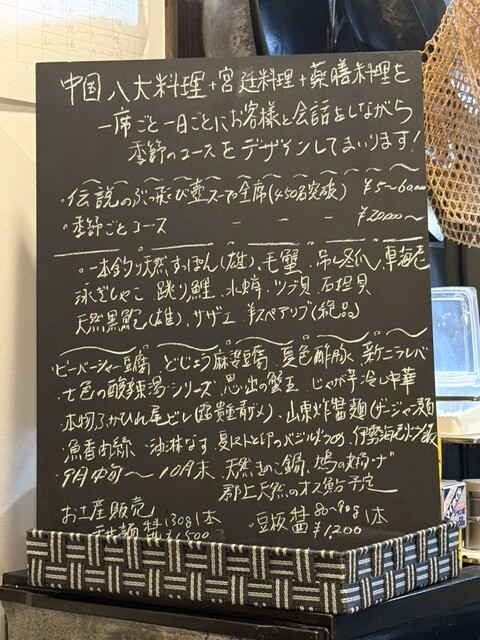 中国八大料理+宮廷料理+薬膳料理を
一席ごと一日ごとにお客様と会話をしながら
季節のコースをデザインしてまいります!
・伝説のぶっ飛び壺スープ全席(450名突破) ¥5〜60000
・季節ごとコース ーーーー ¥20,000〜
。一本釣り天然すっぽん(雄)、毛蟹、吊し冬瓜、車海老
泳ぎしゃこ 跳り鯉、水蛸、ツブ貝 石垣貝
天然黒鮑(雄)、サザエ 羊スペアリブ(絶品)
ビーバーシャー豆腐、どじょう麻婆豆腐 夏色酢豚 新ニラレバ
七色の酸辣湯シリーズ 思い出の蟹玉 じゃが芋冷し中華
本物ふかひれ尾ビレ、山東炸醤麺(ザージャン麺)
魚香肉絲 油淋なす 伊勢海老
・9月中旬〜10月末 天然きのこ鍋、鳩の
郡上天然のオス鮎予定
お土産販売
醤130g1本 ¥1,500
・豆豉醤80〜90g1本
¥1,200